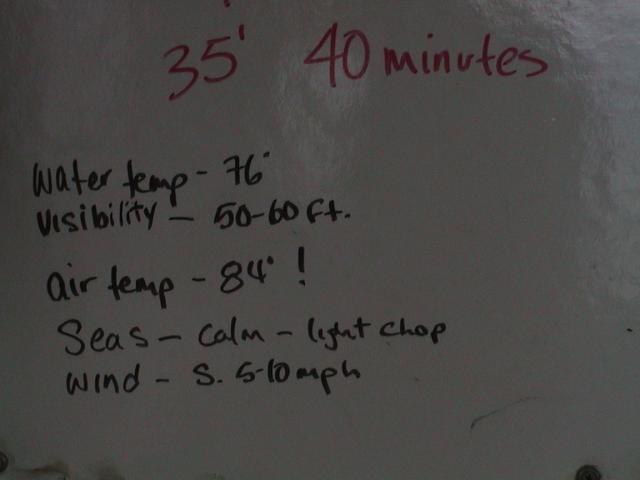 35' 40 minutes
Water temp - 76°
Visibility - 50-60 Ft.
air temp - 84° !
Seas - Calm - light chop
Wind - S. 5-10 mph